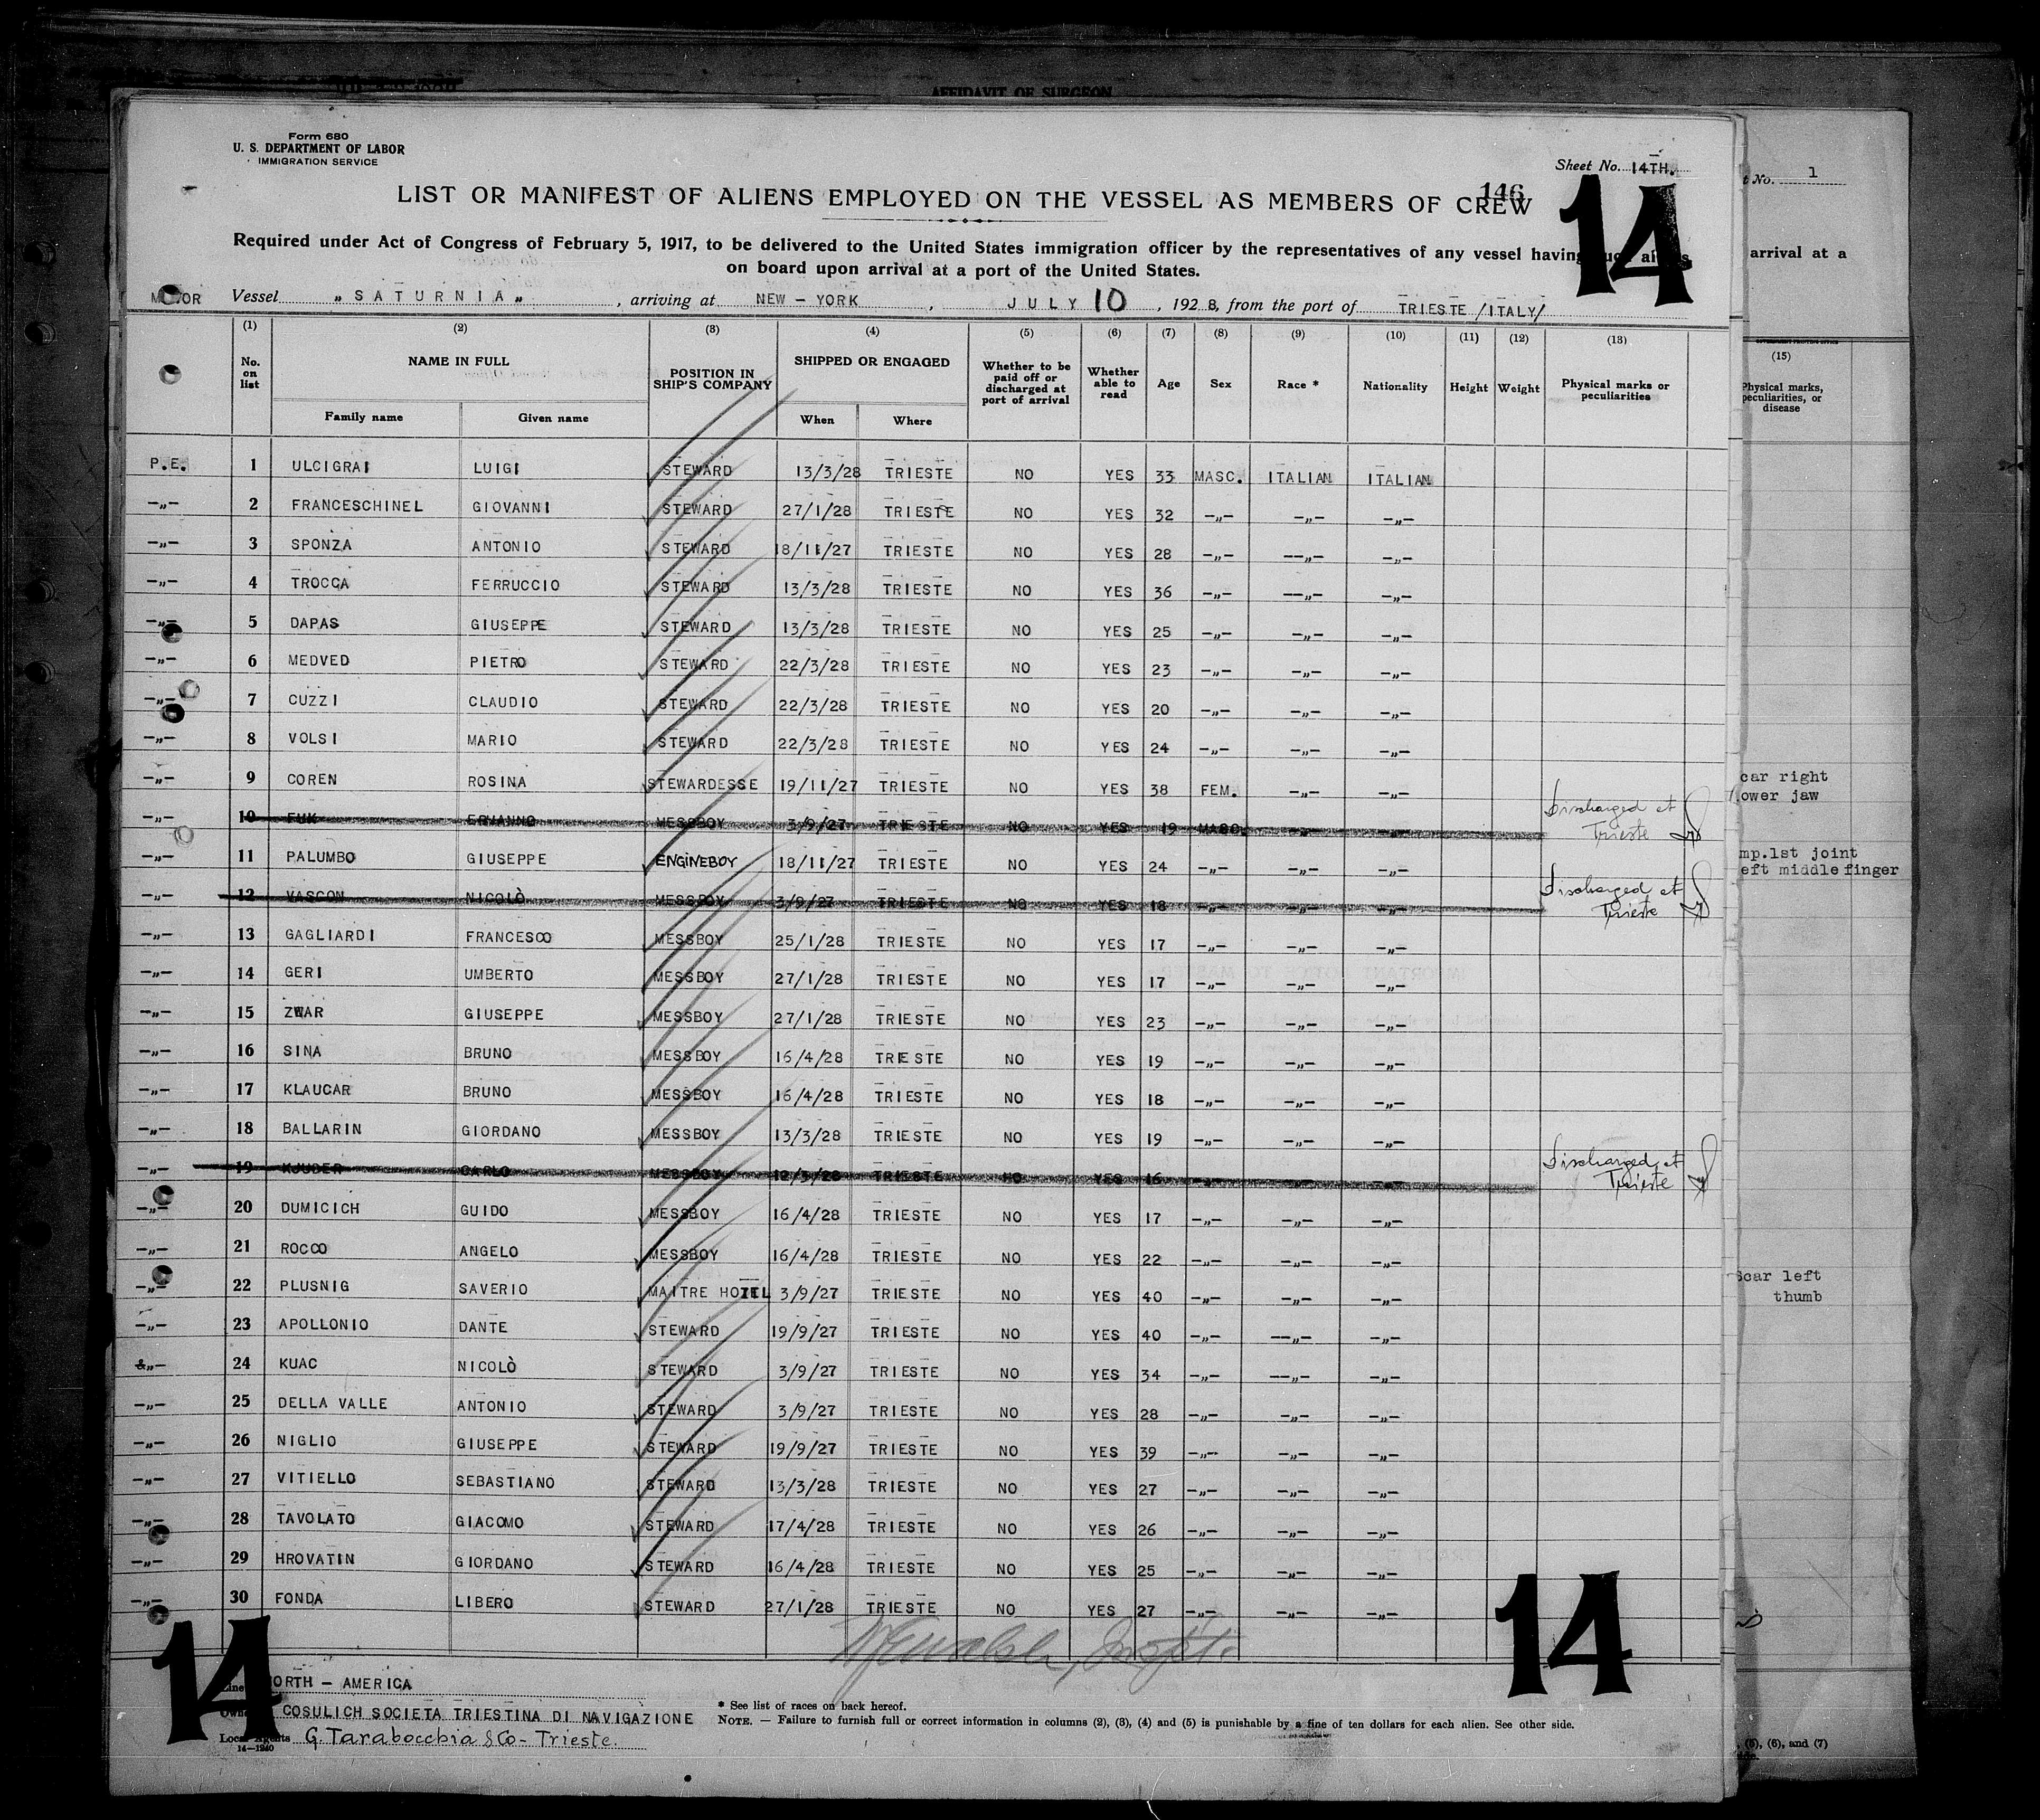 AFFIDAVIT OF SURGEON
Form 680
U. S. DEPARTMENT OF LABOR
IMMIGRATION SERVICE
Sheet No. 14TH.
146
14
LIST OR MANIFEST OF ALIENS EMPLOYED ON THE VESSEL AS MEMBERS OF CREW
Required under Act of Congress of February 5, 1917, to be delivered to the United States immigration officer by the representatives of any vessel having such aliens
on board upon arrival at a port of the United States.
MOTOR Vessel „SATURNIA„, arriving at NEW-YORK, JULY 10, 1928, from the port of TRIESTE /ITALY/
(1) (2) (3) (4) (5) (6) (7) (8) (9) (10) (11) (12) (13)
No. on list NAME IN FULL Family name Given name POSITION IN SHIP'S COMPANY SHIPPED OR ENGAGED When Where Whether to be paid off or discharged at port of arrival Whether able to read Age Sex Race * Nationality Height Weight Physical marks or peculiarities
P.E. 1 ULCIGRAI LUIGI STEWARD 13/3/28 TRIESTE NO YES 33 MASC. ITALIAN ITALIAN
-„- 2 FRANCESCHINEL GIOVANNI STEWARD 27/1/28 TRIESTE NO YES 32 -„- -„- -„-
-„- 3 SPONZA ANTONIO STEWARD 18/11/27 TRIESTE NO YES 28 -„- -„- -„-
-„- 4 TROCCA FERRUCCIO STEWARD 13/3/28 TRIESTE NO YES 36 -„- -„- -„-
-„- 5 DAPAS GIUSEPPE STEWARD 13/3/28 TRIESTE NO YES 25 -„- -„- -„-
-„- 6 MEDVED PIETRO STEWARD 22/3/28 TRIESTE NO YES 23 -„- -„- -„-
-„- 7 CUZZI CLAUDIO STEWARD 22/3/28 TRIESTE NO YES 20 -„- -„- -„-
-„- 8 VOLSI MARIO STEWARD 22/3/28 TRIESTE NO YES 24 -„- -„- -„-
-„- 9 COREN ROSINA STEWARDESSE 19/11/27 TRIESTE NO YES 38 FEM. -„- -„-
-„- 10 FUK ERMANNO MESSBOY 3/9/27 TRIESTE NO YES 19 MASC. -„- -„- Discharged at Trieste
-„- 11 PALUMBO GIUSEPPE ENGINEBOY 18/11/27 TRIESTE NO YES 24 -„- -„- -„-
-„- 12 VASCON NICOLÒ MESSBOY 3/9/27 TRIESTE NO YES 18 -„- -„- -„- Discharged at Trieste
-„- 13 GAGLIARDI FRANCESCO MESSBOY 25/1/28 TRIESTE NO YES 17 -„- -„- -„-
-„- 14 GERI UMBERTO MESSBOY 27/1/28 TRIESTE NO YES 17 -„- -„- -„-
-„- 15 ZWAR GIUSEPPE MESSBOY 27/1/28 TRIESTE NO YES 23 -„- -„- -„-
-„- 16 SINA BRUNO MESSBOY 16/4/28 TRIESTE NO YES 19 -„- -„- -„-
-„- 17 KLAUCAR BRUNO MESSBOY 16/4/28 TRIESTE NO YES 18 -„- -„- -„-
-„- 18 BALLARIN GIORDANO MESSBOY 13/3/28 TRIESTE NO YES 19 -„- -„- -„-
-„- 19 KJUDER CARLO MESSBOY 12/3/28 TRIESTE NO YES 16 -„- -„- -„- Discharged at Trieste
-„- 20 DUMICICH GUIDO MESSBOY 16/4/28 TRIESTE NO YES 17 -„- -„- -„-
-„- 21 ROCCO ANGELO MESSBOY 16/4/28 TRIESTE NO YES 22 -„- -„- -„-
-„- 22 PLUSNIG SAVERIO MAITRE HOTEL 3/9/27 TRIESTE NO YES 40 -„- -„- -„-
-„- 23 APOLLONIO DANTE STEWARD 19/9/27 TRIESTE NO YES 40 -„- -„- -„-
&„- 24 KUAC NICOLÒ STEWARD 3/9/27 TRIESTE NO YES 34 -„- -„- -„-
-„- 25 DELLA VALLE ANTONIO STEWARD 3/9/27 TRIESTE NO YES 28 -„- -„- -„-
-„- 26 NIGLIO GIUSEPPE STEWARD 19/9/27 TRIESTE NO YES 39 -„- -„- -„-
-„- 27 VITIELLO SEBASTIANO STEWARD 13/3/28 TRIESTE NO YES 27 -„- -„- -„-
-„- 28 TAVOLATO GIACOMO STEWARD 17/4/28 TRIESTE NO YES 26 -„- -„- -„-
-„- 29 HROVATIN GIORDANO STEWARD 16/4/28 TRIESTE NO YES 25 -„- -„- -„-
-„- 30 FONDA LIBERO STEWARD 27/1/28 TRIESTE NO YES 27 -„- -„- -„-
14
14
Line NORTH - AMERICA
Owners COSULICH SOCIETA TRIESTINA DI NAVIGAZIONE
Local Agents G. Tarabocchia & Co - Trieste.
14-1240
* See list of races on back hereof.
NOTE. — Failure to furnish full or correct information in columns (2), (3), (4) and (5) is punishable by a fine of ten dollars for each alien. See other side.
t No. 1
arrival at a
(15)
Physical marks, peculiarities, or disease
car right
lower jaw
mp.1st joint
eft middle finger
Scar left
thumb
, (5), (6), and (7)